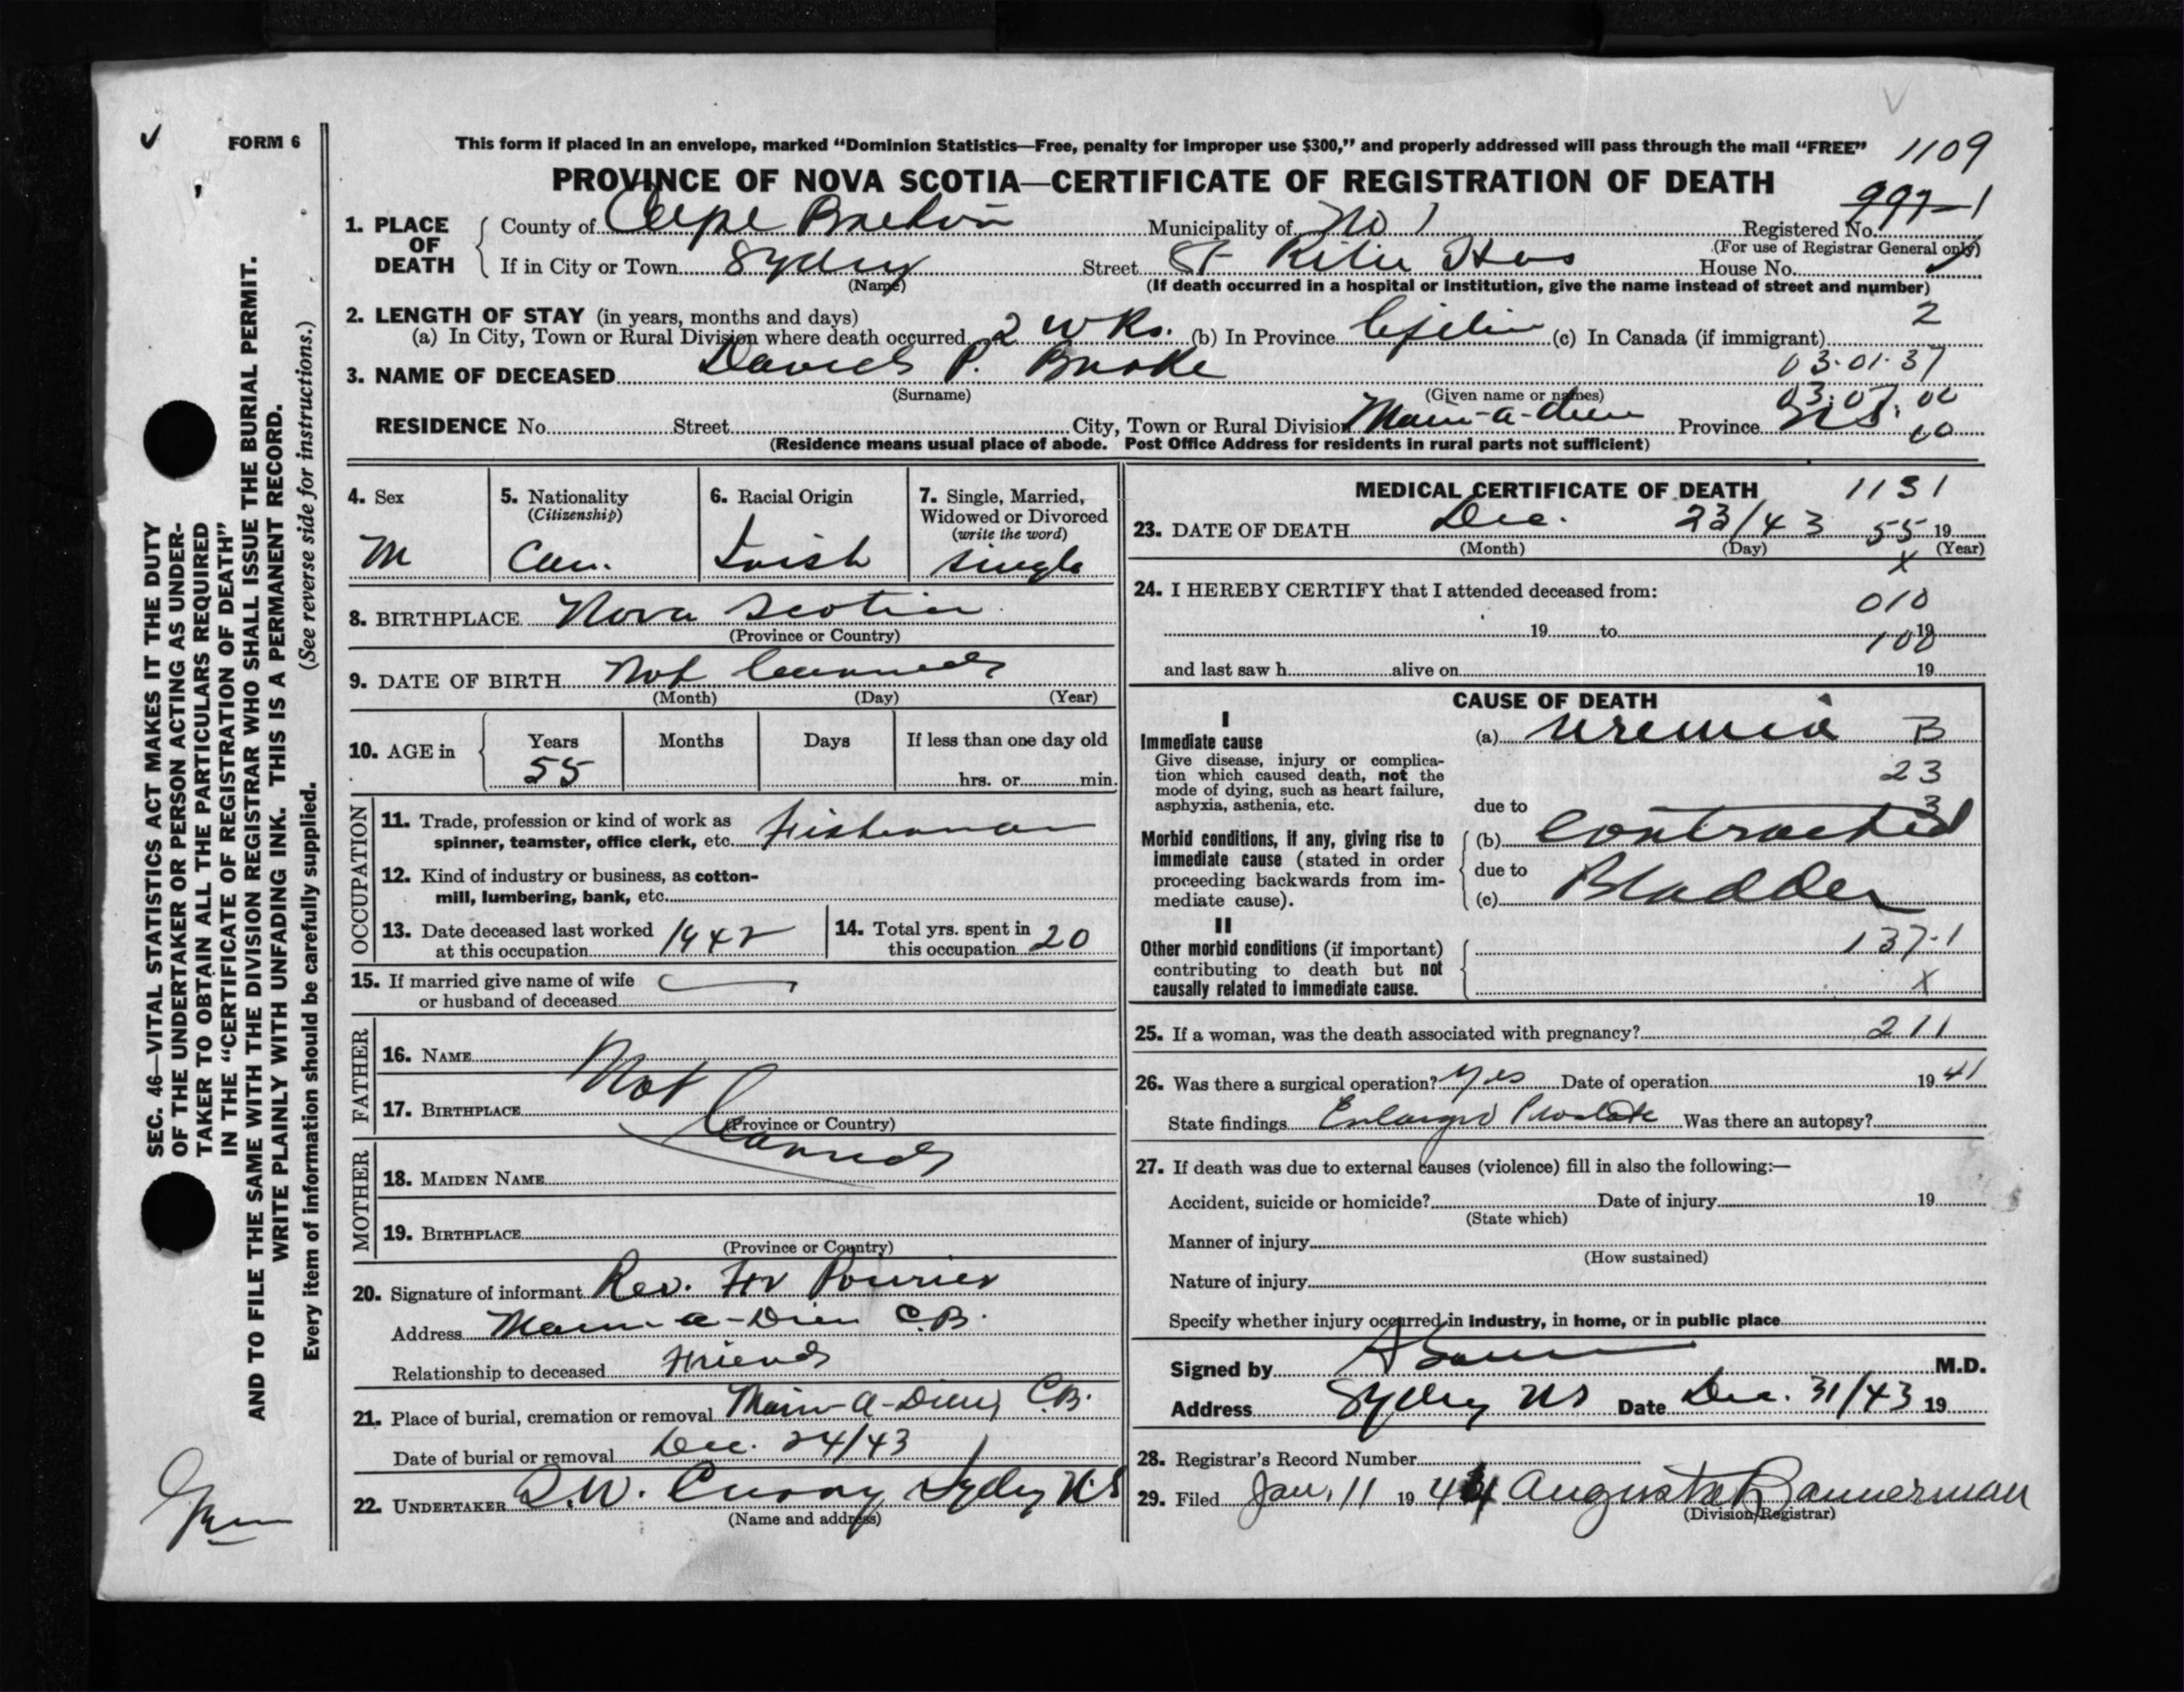 FORM 6
This form if placed in an envelope, marked “Dominion Statistics—Free, penalty for improper use $300,” and properly addressed will pass through the mail “FREE” 1109
PROVINCE OF NOVA SCOTIA—CERTIFICATE OF REGISTRATION OF DEATH
997-1
1. PLACE OF DEATH County of Cape Breton Municipality of No 1 Registered No.
(For use of Registrar General only)
If in City or Town Sydney Street St Rita Hos House No.
(Name) (If death occurred in a hospital or institution, give the name instead of street and number)
2. LENGTH OF STAY (in years, months and days) 2
(a) In City, Town or Rural Division where death occurred 2 wks. (b) In Province Lifetime (c) In Canada (if immigrant)
3. NAME OF DECEASED David P. Burke 03.01.37
(Surname) (Given name or names) 03.07.00
RESIDENCE No. Street City, Town or Rural Division Main-a-dieu Province NS. 60
(Residence means usual place of abode. Post Office Address for residents in rural parts not sufficient)
4. Sex M
5. Nationality (Citizenship) Can.
6. Racial Origin Irish
7. Single, Married, Widowed or Divorced (write the word) Single
8. BIRTHPLACE Nova Scotia
(Province or Country)
9. DATE OF BIRTH Not Learned
(Month) (Day) (Year)
10. AGE in Years Months Days If less than one day old
55 hrs. or min.
OCCUPATION
11. Trade, profession or kind of work as spinner, teamster, office clerk, etc. Fisherman
12. Kind of industry or business, as cotton-mill, lumbering, bank, etc.
13. Date deceased last worked at this occupation 1942
14. Total yrs. spent in this occupation 20
15. If married give name of wife or husband of deceased
FATHER
16. NAME Not
17. BIRTHPLACE Learned
(Province or Country)
MOTHER
18. MAIDEN NAME
19. BIRTHPLACE
(Province or Country)
20. Signature of informant Rev. Fr Poirier
Address Main-a-Dieu C.B.
Relationship to deceased Friend
21. Place of burial, cremation or removal Main-a-Dieu, C.B.
Date of burial or removal Dec. 24/43
22. UNDERTAKER D.W. Curry Sydney N.S
(Name and address)
MEDICAL CERTIFICATE OF DEATH 1131
23. DATE OF DEATH Dec. 23/43 55 19
(Month) (Day) (Year)
x
24. I HEREBY CERTIFY that I attended deceased from:
010
19 to 19
100
and last saw h alive on 19
CAUSE OF DEATH
I
Immediate cause (a) Uremia B
Give disease, injury or complication which caused death, not the mode of dying, such as heart failure, asphyxia, asthenia, etc.
23
3
due to
Morbid conditions, if any, giving rise to immediate cause (stated in order proceeding backwards from immediate cause).
(b) Contracted
due to
(c) Bladder
II
Other morbid conditions (if important) contributing to death but not causally related to immediate cause.
137-1
x
25. If a woman, was the death associated with pregnancy? 211
26. Was there a surgical operation? Yes Date of operation 19 41
State findings Enlarged Prostate Was there an autopsy?
27. If death was due to external causes (violence) fill in also the following:—
Accident, suicide or homicide? Date of injury 19
(State which)
Manner of injury
(How sustained)
Nature of injury
Specify whether injury occurred in industry, in home, or in public place
Signed by M.D.
Address Sydney NS Date Dec. 31/43 19
28. Registrar's Record Number
29. Filed Jan. 11 1944 Augusta Bannerman
(Division Registrar)
SEC. 46—VITAL STATISTICS ACT MAKES IT THE DUTY
OF THE UNDERTAKER OR PERSON ACTING AS UNDER-
TAKER TO OBTAIN ALL THE PARTICULARS REQUIRED
IN THE “CERTIFICATE OF REGISTRATION OF DEATH”
AND TO FILE THE SAME WITH THE DIVISION REGISTRAR WHO SHALL ISSUE THE BURIAL PERMIT.
WRITE PLAINLY WITH UNFADING INK. THIS IS A PERMANENT RECORD.
Every item of information should be carefully supplied. (See reverse side for instructions.)